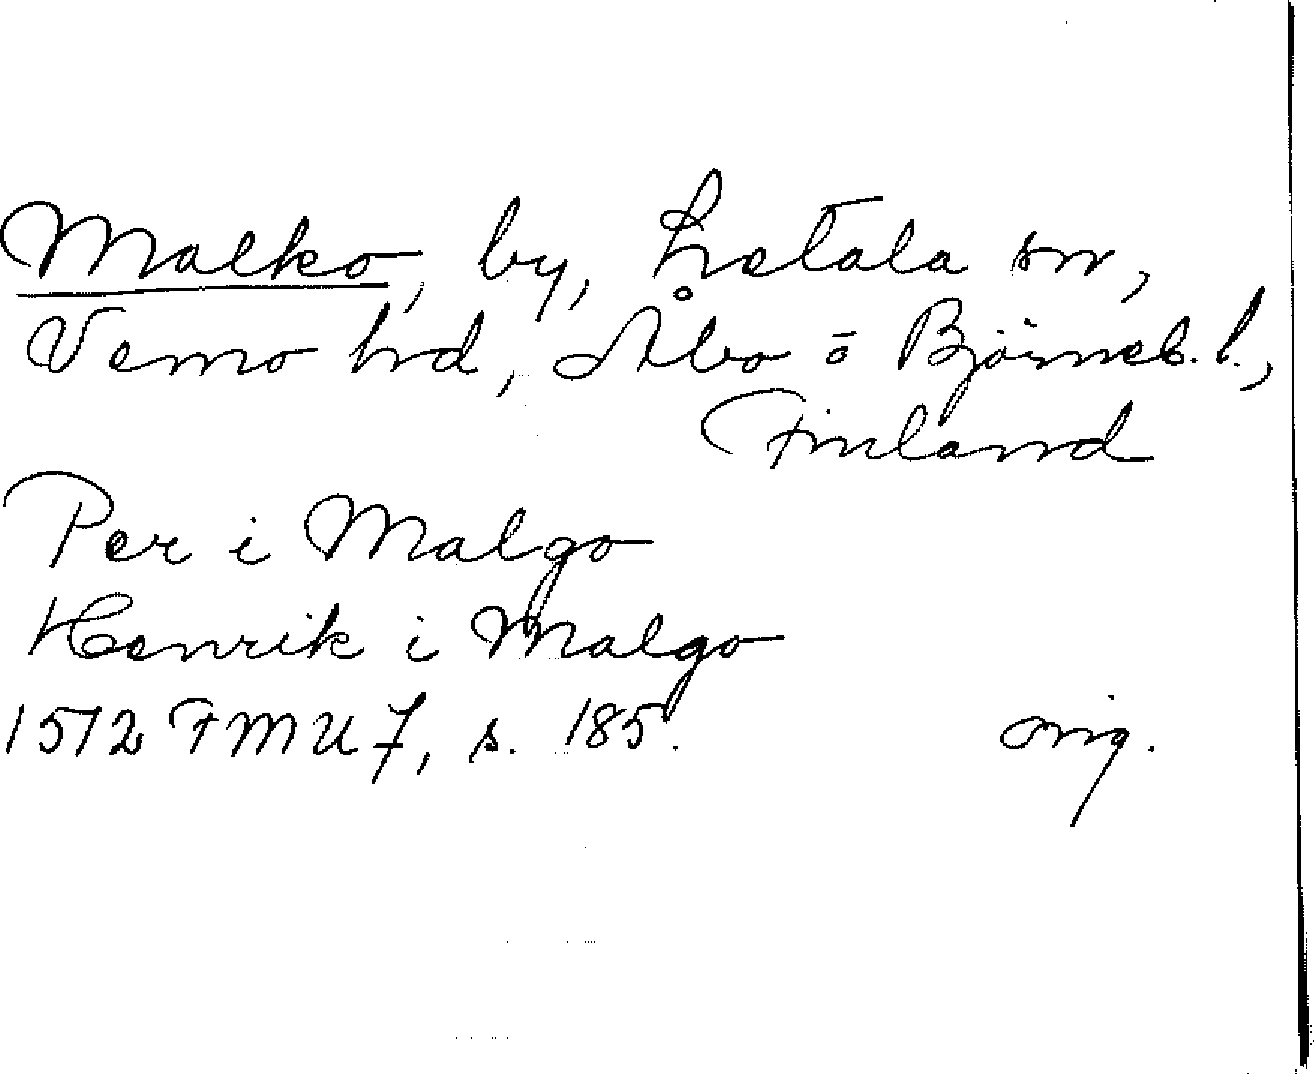 Malko, by, Letala sn,
Vemo hd, Åbo ō Björneb. l.,
Finland
Per i Malgo
Henrik i Malgo
1512 FMU 7, s. 185. orig.